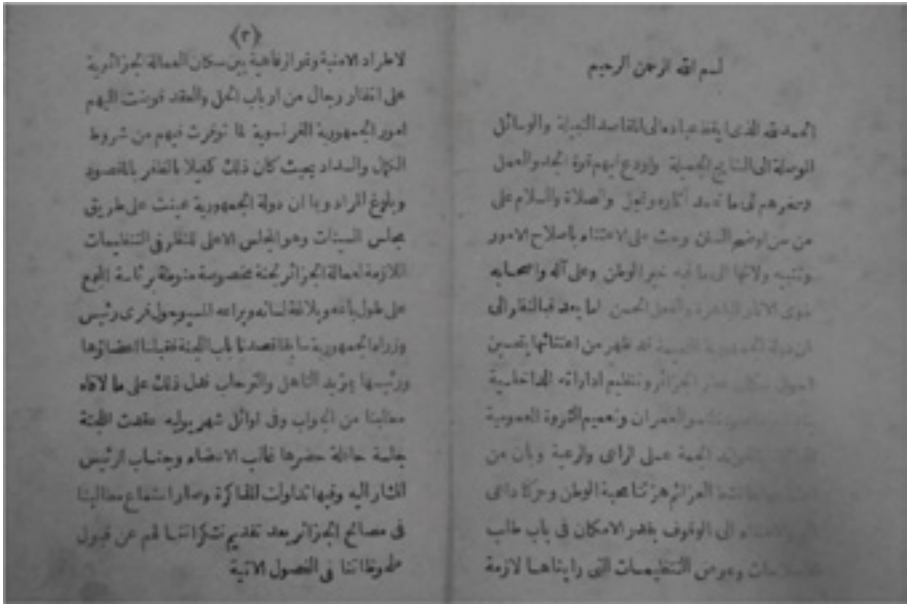 بسم الله الرحمن الرحيم
الحمد لله الذى ايقظ عباده الى المقاصد النبيلة والوسائل
الموصلة الى النتايج الجميلة واودع فيهم قوة الجد والعمل
وحفزهم الى ما تحمد آثاره وتجل والصلاة والسلام على
من سن اوضح السنن وحث على الاعتناء باصلاح الامور
وتنبيه ولاتها الى ما فيه خير الوطن وعلى آله واصحابه
ذوى الاثار الباهرة والفعل الحسن اما بعد فبالنظر الى
ان دولة الجمهورية قد ظهر من اعتنائها بتحسين
احوال سكان الجزائر وتنظيم اداراته الداخلية
والعمران وتعميم الثروة العمومية
الجمة على الراعى والرعية وبان من
العزائم هزتنا محبة الوطن وحركنا داعى
الى الوقوف بقدر الامكان فى باب طلب
وعرض التنظيمات التى رايناها لازمة
(٢)
لاطراد الامنية وتواز فاهية بين سكان العمالة الجزائرية
على انظار رجال من ارباب الحل والعقد فوضت اليهم
امور الجمهورية الفرنسوية لما توفرت فيهم من شروط
الكمال والسداد بحيث كان ذلك كفيلا بالظفر بالمقصود
وبلوغ المراد وبما ان دولة الجمهورية عينت على طريق
مجلس السينات وهو المجلس الاعلى للنظر فى التنظيمات
اللازمة لعمالة الجزائر لجنة مخصوصة منوطة برئاسة
على طول باعه وبلاغة لسانه ويراعه المسيو جول فرى رئيس
وزراء الجمهورية سابقا قصدنا باب اللجنة فقبلنا اعضاؤها
ورئيسها بمزيد التاهل والترحاب فدل ذلك على ما لاقاه
مطلبنا من الجواب وفى اوائل شهر يوليه عقدت اللجنة
جلسة حافلة حضرها غالب الاعضاء وجناب الرئيس
المشار اليه وفيها تداولت المذاكرة وصار استماع مطالبنا
فى مصالح الجزائر بعد تقديم تشكراتنا لهم عن قبول
ملحوظاتنا فى الفصول الاتية